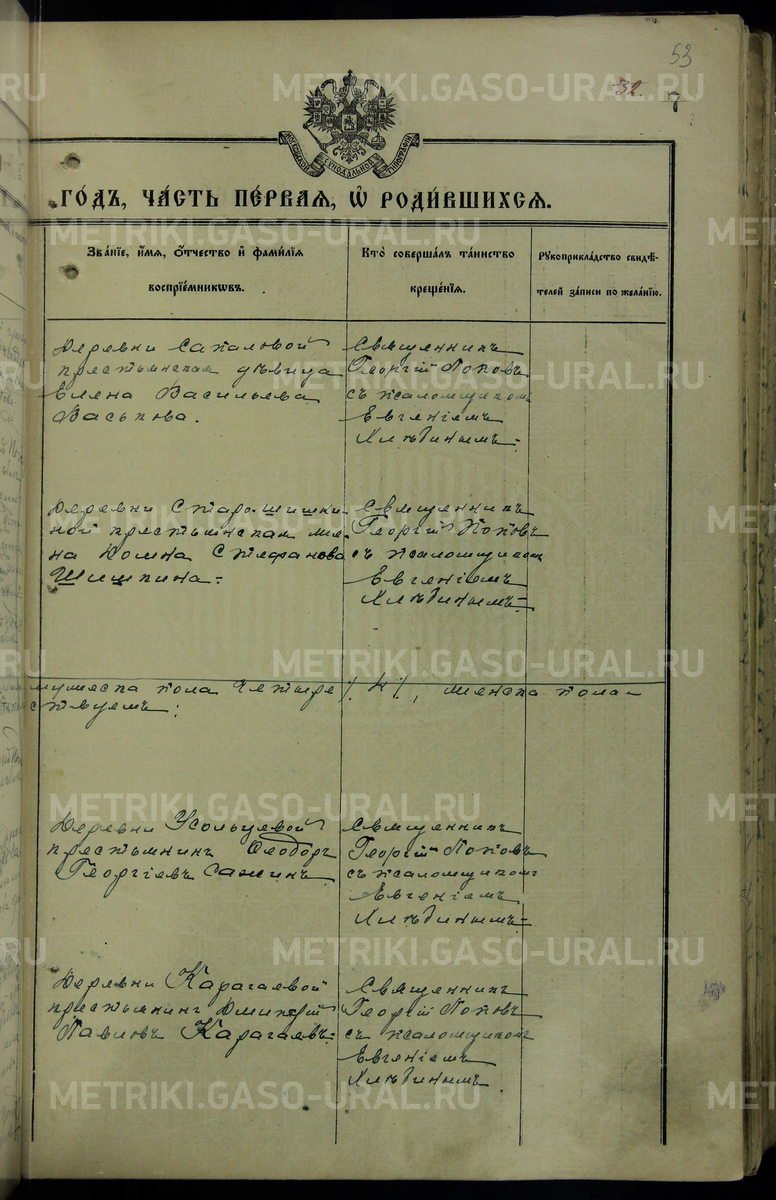 53
32.
7
МОСКОВСКОЙ СѴНОДАЛЬНОЙ ТИПОГРАФІИ
ГОДЪ, ЧАСТЬ ПЕРВАЯ, Ѡ РОДИВШИХСЯ.
Званіе, имя, отчество и фамилія
воспріемниковъ.
Кто совершалъ таинство
крещенія.
Рукоприкладство свидѣ-
телей записи по желанію.
Деревни
крестьянская дѣвица
Елена Васильева
Васькова.
Священникъ
Георгій Поповъ
съ псаломщикомъ
Евгеніемъ
Хлѣбинымъ.
Деревни Старо-шишки-
ной крестьянская же-
на Стефанова
Шишкина.
Священникъ
Георгій Поповъ
съ псаломщикомъ
Евгеніемъ
Хлѣбинымъ.
мужеска пола четыре /. 4 /., женска пола
Деревни Усольцевой
крестьянинъ Ѳеодоръ
Георгіевъ
Священникъ
Георгій Поповъ
съ псаломщикомъ
Евгеніемъ
Хлѣбинымъ.
Деревни Карагаевой
крестьянинъ Димитрій
Павловъ Карагаевъ.
Священникъ
Георгій Поповъ
съ псаломщикомъ
Евгеніемъ
Хлѣбинымъ.
METRIKI.GASO-URAL.RU